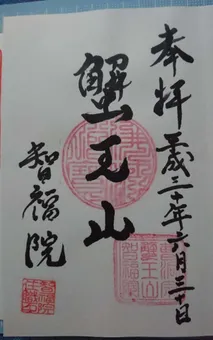 奉拝
平成三十年六月三十日
蟹王山
智福院